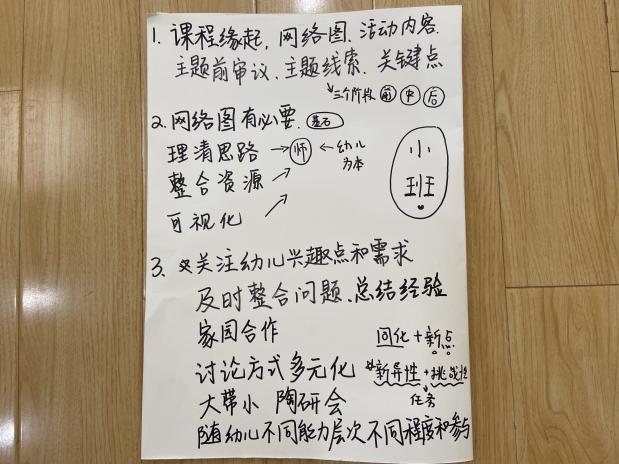 1. 课程缘起, 网络图、活动内容.
主题前审议、主题线索、关键点
三个阶段 前 中 后
2. 网络图有必要. 基石
理清思路 → 师 ← 幼儿为本
整合资源
可视化
小班
3. 关注幼儿兴趣点和需求
及时整合问题、总结经验
家园合作
同化+新点
讨论方式多元化
新异性+挑战性
任务
大带小 陶研会
随幼儿不同能力层次不同程度和参与